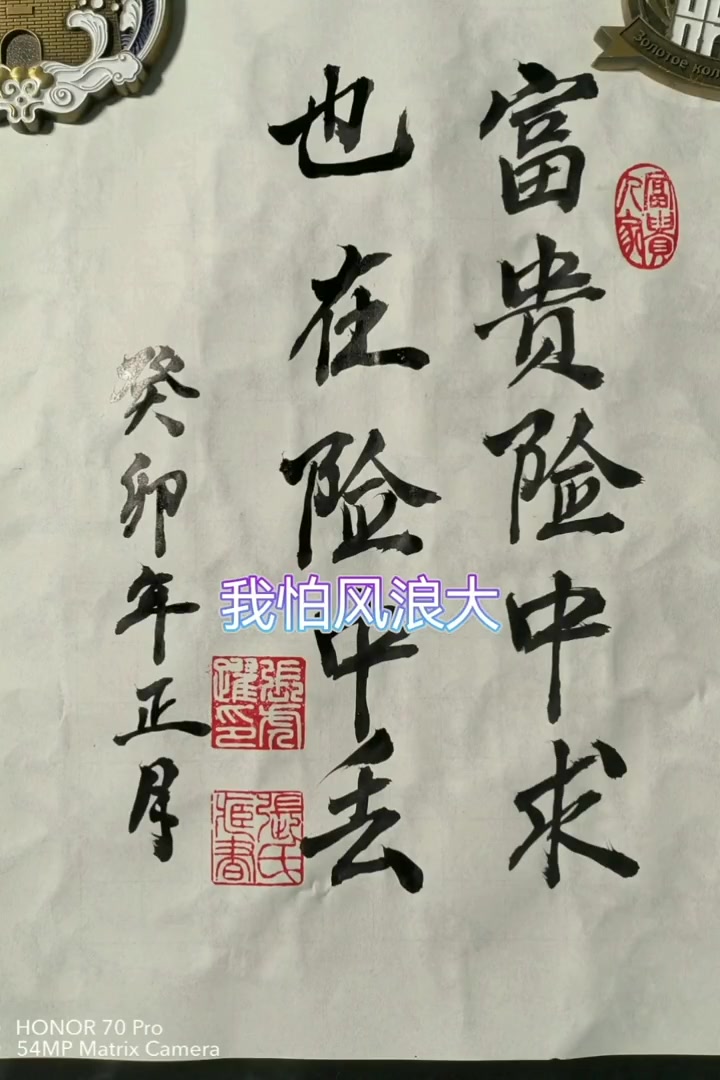 富贵险中求
也在险中丢
癸卯年正月
富貴人家
張氏藏書
我怕风浪大
Золотое кол
HONOR 70 Pro
54MP Matrix Camera